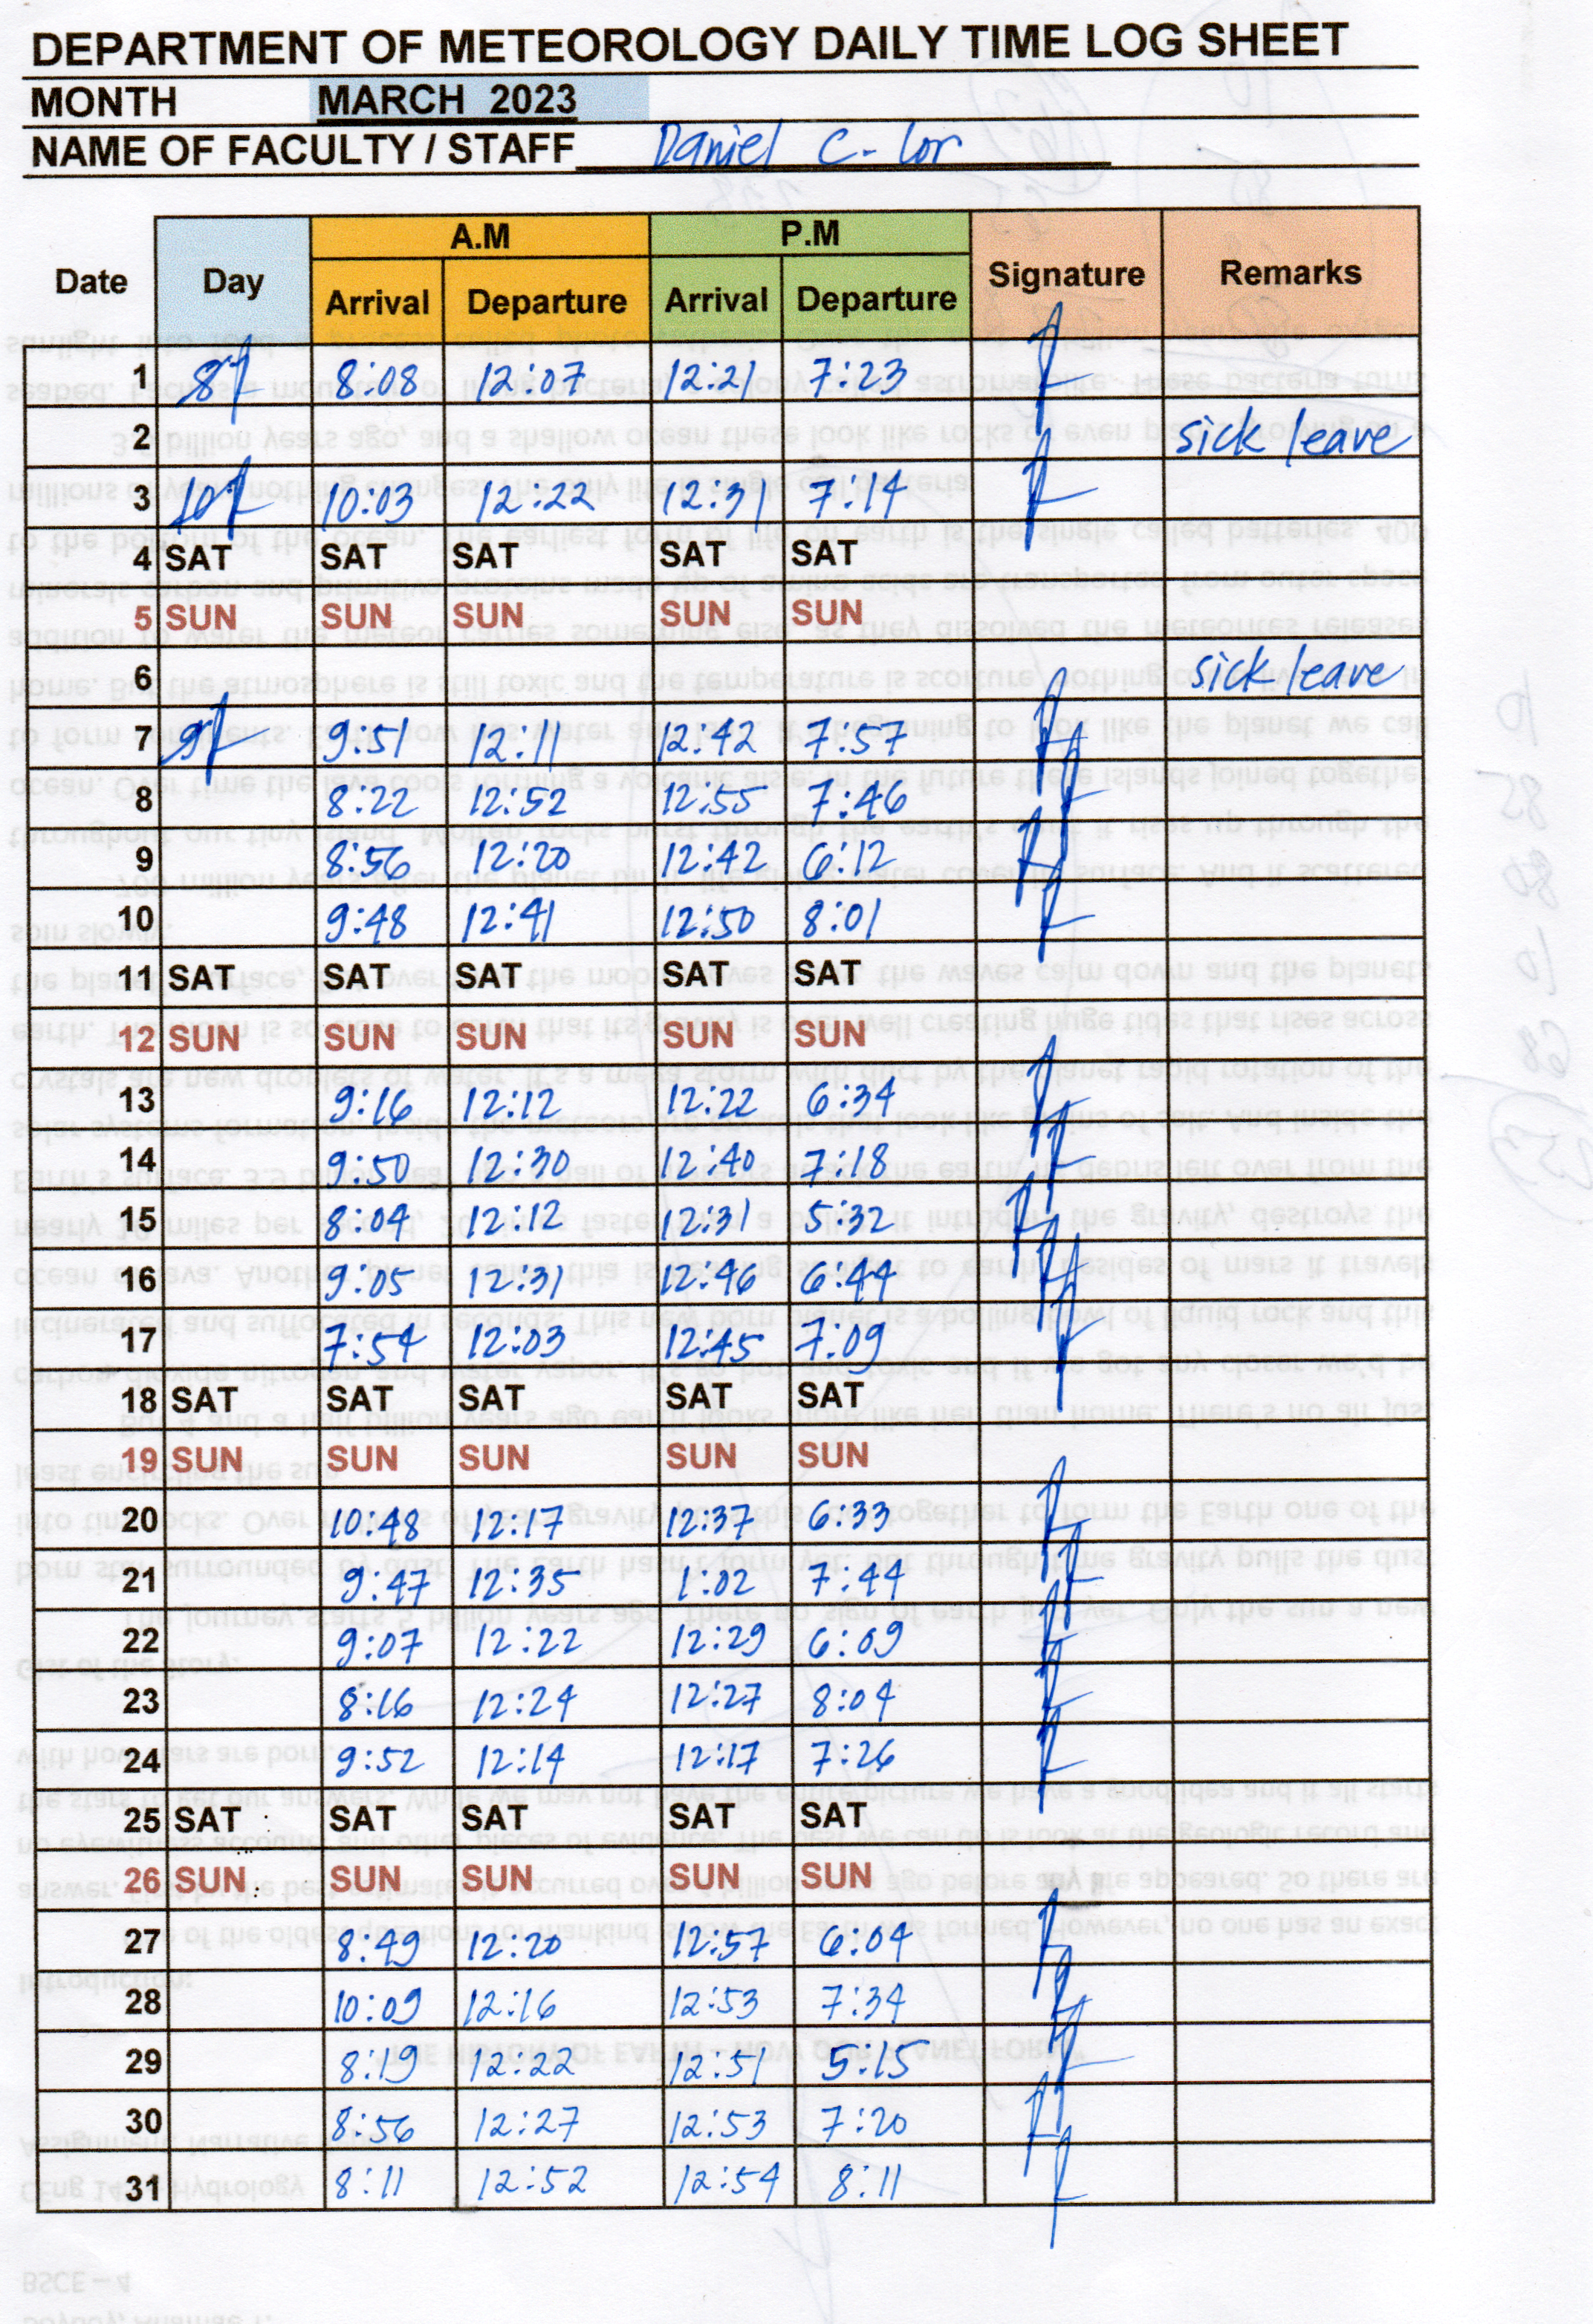 DEPARTMENT OF METEOROLOGY DAILY TIME LOG SHEET
MONTH MARCH 2023
NAME OF FACULTY / STAFF Daniel C. Lor
A.M P.M
Date Day Arrival Departure Arrival Departure Signature Remarks
1 8:08 12:07 12:21 7:23
2 sick leave
3 10:03 12:22 12:31 7:14
4 SAT SAT SAT SAT SAT
5 SUN SUN SUN SUN SUN
6 sick leave
7 9:51 12:11 12:42 7:57
8 8:22 12:52 12:55 7:46
9 8:56 12:20 12:42 6:12
10 9:48 12:41 12:50 8:01
11 SAT SAT SAT SAT SAT
12 SUN SUN SUN SUN SUN
13 9:16 12:12 12:22 6:34
14 9:50 12:30 12:40 7:18
15 8:04 12:12 12:31 5:32
16 9:05 12:31 12:46 6:44
17 7:54 12:03 12:45 7:09
18 SAT SAT SAT SAT SAT
19 SUN SUN SUN SUN SUN
20 10:48 12:17 12:37 6:33
21 9:47 12:35 1:02 7:44
22 9:07 12:22 12:29 6:09
23 8:16 12:24 12:27 8:04
24 9:52 12:14 12:17 7:26
25 SAT SAT SAT SAT SAT
26 SUN SUN SUN SUN SUN
27 8:49 12:20 12:57 6:04
28 10:09 12:16 12:53 7:34
29 8:19 12:22 12:51 5:15
30 8:56 12:27 12:53 7:20
31 8:11 12:52 12:54 8:11